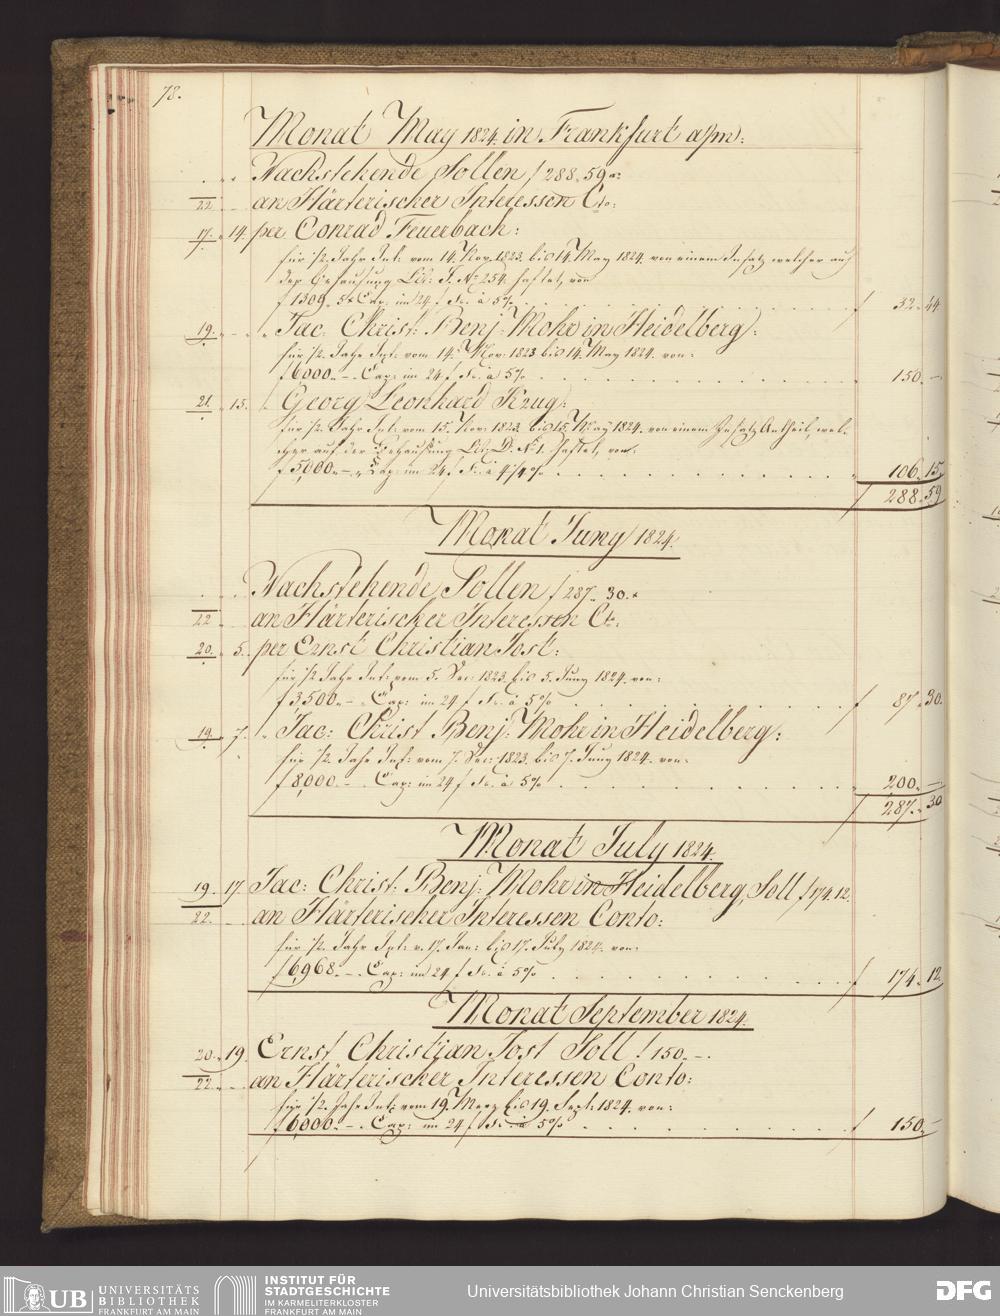 78.
Monat May 1824. in Frankfurt a/m:
Nachstehende Sollen f 288. 59 x:
22. an Härterischer Interessen Cto:
17. 14. per Conrad Feuerbach:
für 1/2. Jahr Int: vom 14. Nov. 1823. bis 14. May 1824. von einem Insatz welcher auf
der Behausung Lit: J. No. 254. haftet, von
f 1309. 5x Cap: im 24 f Fs. à 5% f 32. 44.
19. " Jac: Christ: Benj: Mohr in Heidelberg:
für 1/2. Jahr Int: vom 14. Nov: 1823 bis 14. May 1824. von:
f 6000. – . Cap: im 24 f Fs. à 5% 150. –
21. 15. Georg Leonhard Krug:
für 1/2. Jahr Int: vom 15. Nov: 1823. bis 15. May 1824. von einem Insatz Antheil, wel-
cher auf der Behausung Lit: D. No. 1. haftet, von.
f 5000. – . Cap: im 24 f Fs. à 4 1/4% 106. 15.
f 288. 59
Monat Juny 1824.
Nachstehende Sollen f 287. 30. x
22 an Härterischer Interessen Cto:
20. 5. per Ernst Christian Jost:
für 1/2 Jahr Int: vom 5. Dec: 1823. bis 5. Juny 1824. von:
f 3,500. – . Cap: im 24 f Fs. à 5% f 87. 30.
19. 7. " Jac: Christ Benj: Mohr in Heidelberg:
für 1/2. Jahr Int: vom 7. Dec: 1823. bis 7. Juny 1824. von:
f 8,000. – . Cap: im 24 f Fs. à 5% 200. –
f 287. 30
Monat July 1824.
19. 17. Jac: Christ: Benj: Mohr in Heidelberg, Soll f 174. 12.
22. an Härterischer Interessen Conto:
für 1/2. Jahr Int: v. 17. Jan: bis 17. July 1824. von:
f 6,968. – . Cap: im 24 f Fs. à 5% f 174. 12.
Monat September 1824.
20. 19. Ernst Christian Jost Soll f 150. – .
22. an Härterischer Interessen Conto:
für 1/2. Jahr Int: vom 19. Merz bis 19. Sept: 1824. von:
f 6,000. – . Cap: im 24 f Fs. à 5% f 150. –
UB UNIVERSITÄTS
BIBLIOTHEK
FRANKFURT AM MAIN
INSTITUT FÜR
STADTGESCHICHTE
IM KARMELITERKLOSTER
FRANKFURT AM MAIN
Universitätsbibliothek Johann Christian Senckenberg
DFG